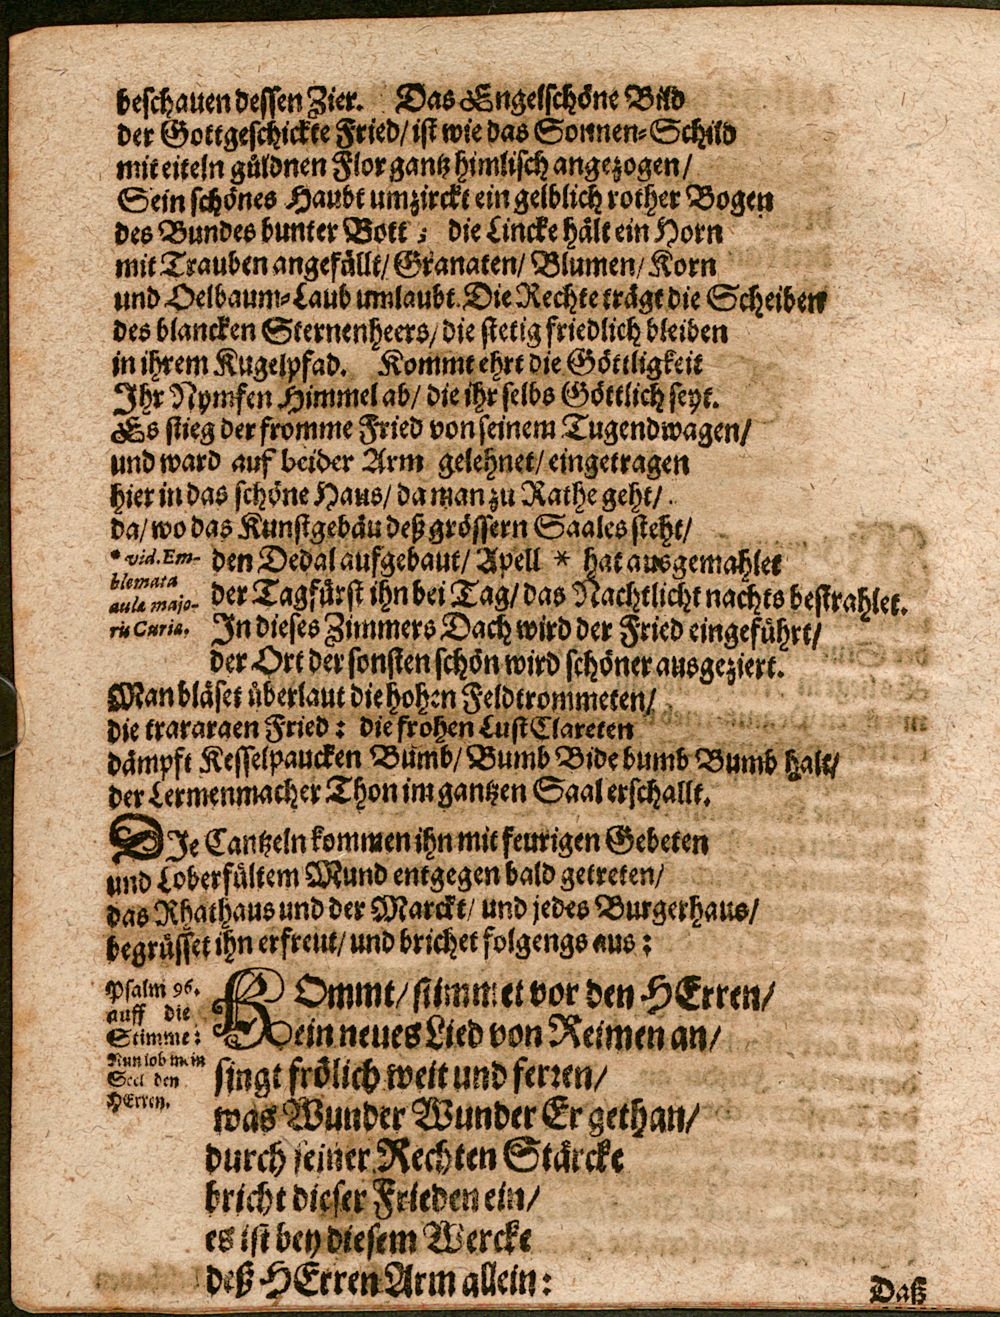 beschauen dessen Zier. Das Engelschöne Bild
der Gottgeschickte Fried/ ist wie das Sonnen-Schild
mit eiteln güldnen Flor gantz himlisch angezogen/
Sein schönes Haubt umzirckt ein gelblich rother Bogen
des Bundes bunter Bott; die Lincke hält ein Horn
mit Trauben angefüllt/ Granaten/ Blumen/ Korn
und Oelbaum-Laub umlaubt. Die Rechte trägt die Scheiben
des blancken Sternenheers/ die stetig friedlich bleiben
in ihrem Kugelpfad. Kommt ehrt die Göttligkeit
Ihr Nymfen Himmel ab/ die ihr selbs Göttlich seyt.
Es stieg der fromme Fried von seinem Tugendwagen/
und ward auf beider Arm gelehnet/ eingetragen
hier in das schöne Haus/ da man zu Rathe geht/
da/ wo das Kunstgebäu deß grössern Saales steht/
* vid. Em-
blemata
aulæ majo-
ris Curiæ.
den Dedal aufgebaut/ Apell * hat ausgemahlet
der Tagfürst ihn bei Tag/ das Nachtlicht nachts bestrahlet.
In dieses Zimmers Dach wird der Fried eingeführt/
der Ort der sonsten schön wird schöner ausgeziert.
Man bläset überlaut die hohen Feldtrommeten/
die trararaen Fried: die frohen LustClareten
dämpft Kesselpaucken Bumb/ Bumb Bide bumb Bumb halt/
der Lermenmacher Thon im gantzen Saal erschallt.
DIe Cantzeln kommen ihn mit feurigen Gebeten
und Loberfültem Mund entgegen bald getreten/
das Rhathaus und der Marckt/ und jedes Burgerhaus/
begrüsset ihn erfreut/ und brichet folgengs aus:
Psalm 96.
auff die
Stimme:
Nun lob mein
Seel den
HErren.
KOmmt/ stimmet vor den HErren/
ein neues Lied von Reimen an/
singt frölich weit und ferren/
was Wunder Wunder Er gethan/
durch seiner Rechten Stärcke
bricht dieser Frieden ein/
es ist bey diesem Wercke
deß HErren Arm allein:
Daß